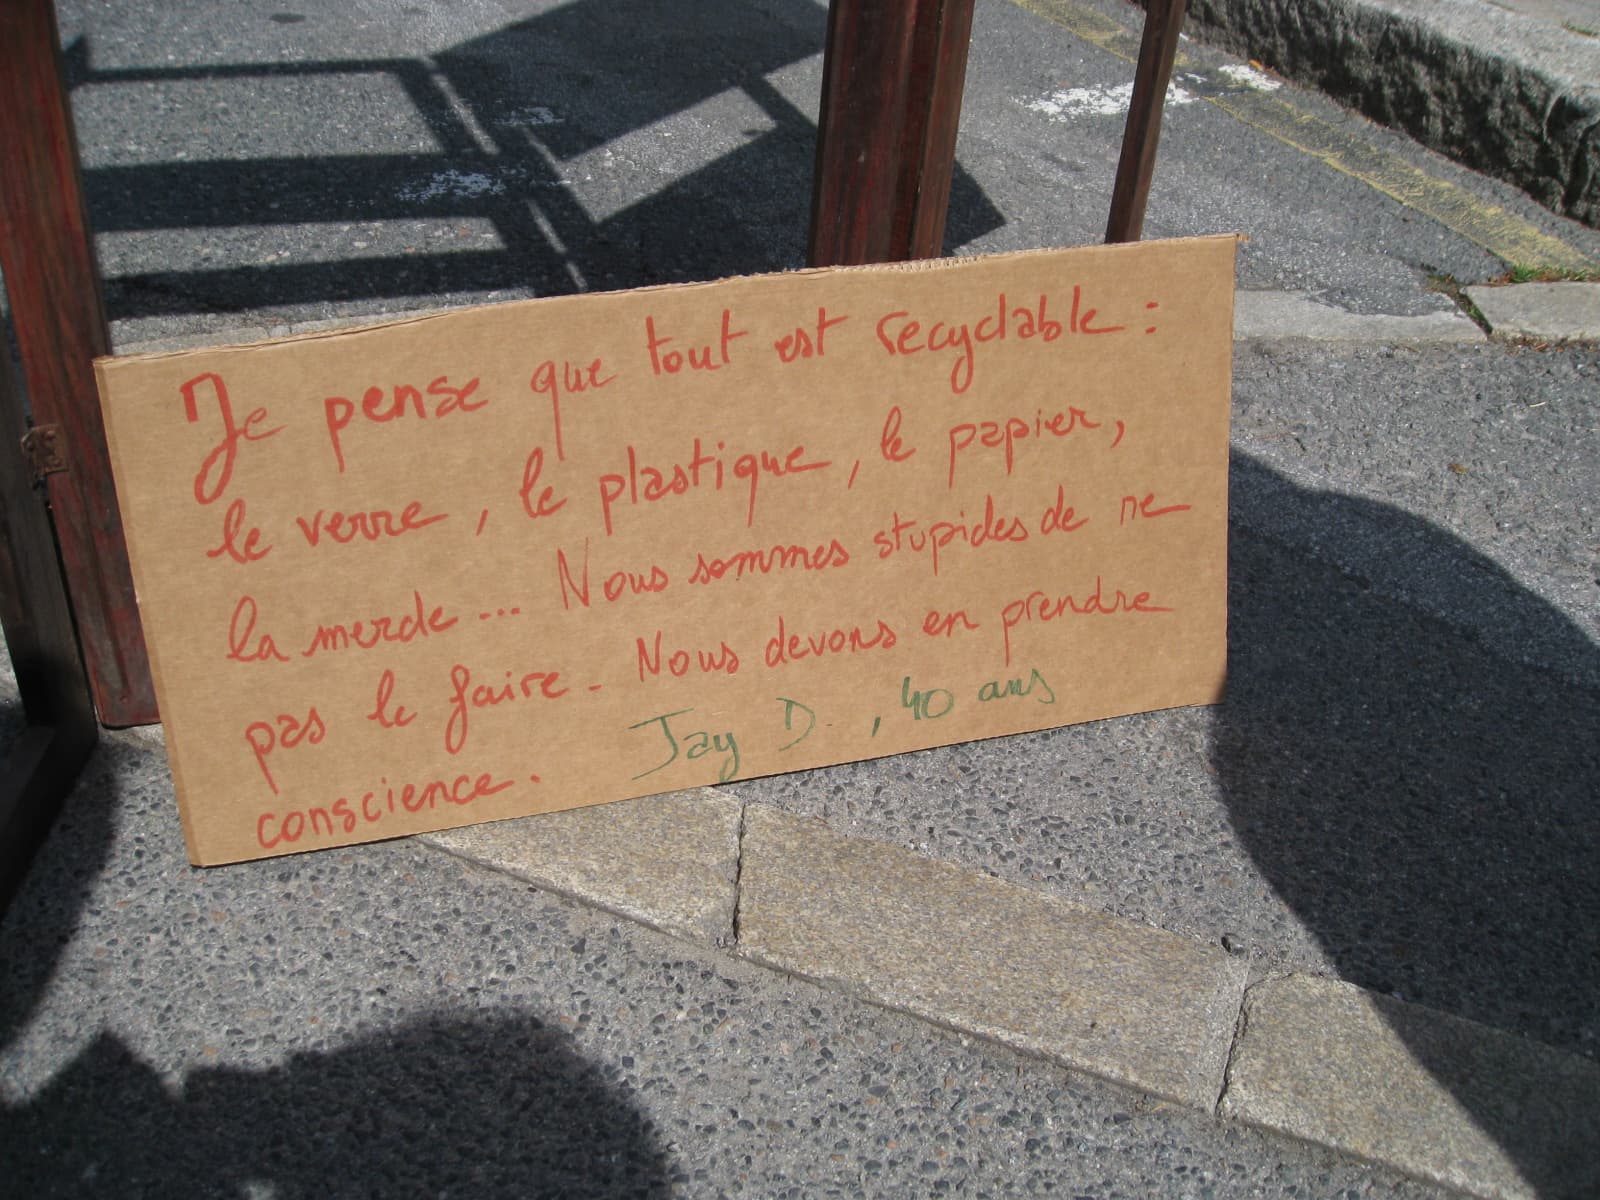 Je pense que tout est recyclable :
le verre, le plastique, le papier,
la merde... Nous sommes stupides de ne
pas le faire. Nous devons en prendre
conscience. Jay D., 40 ans